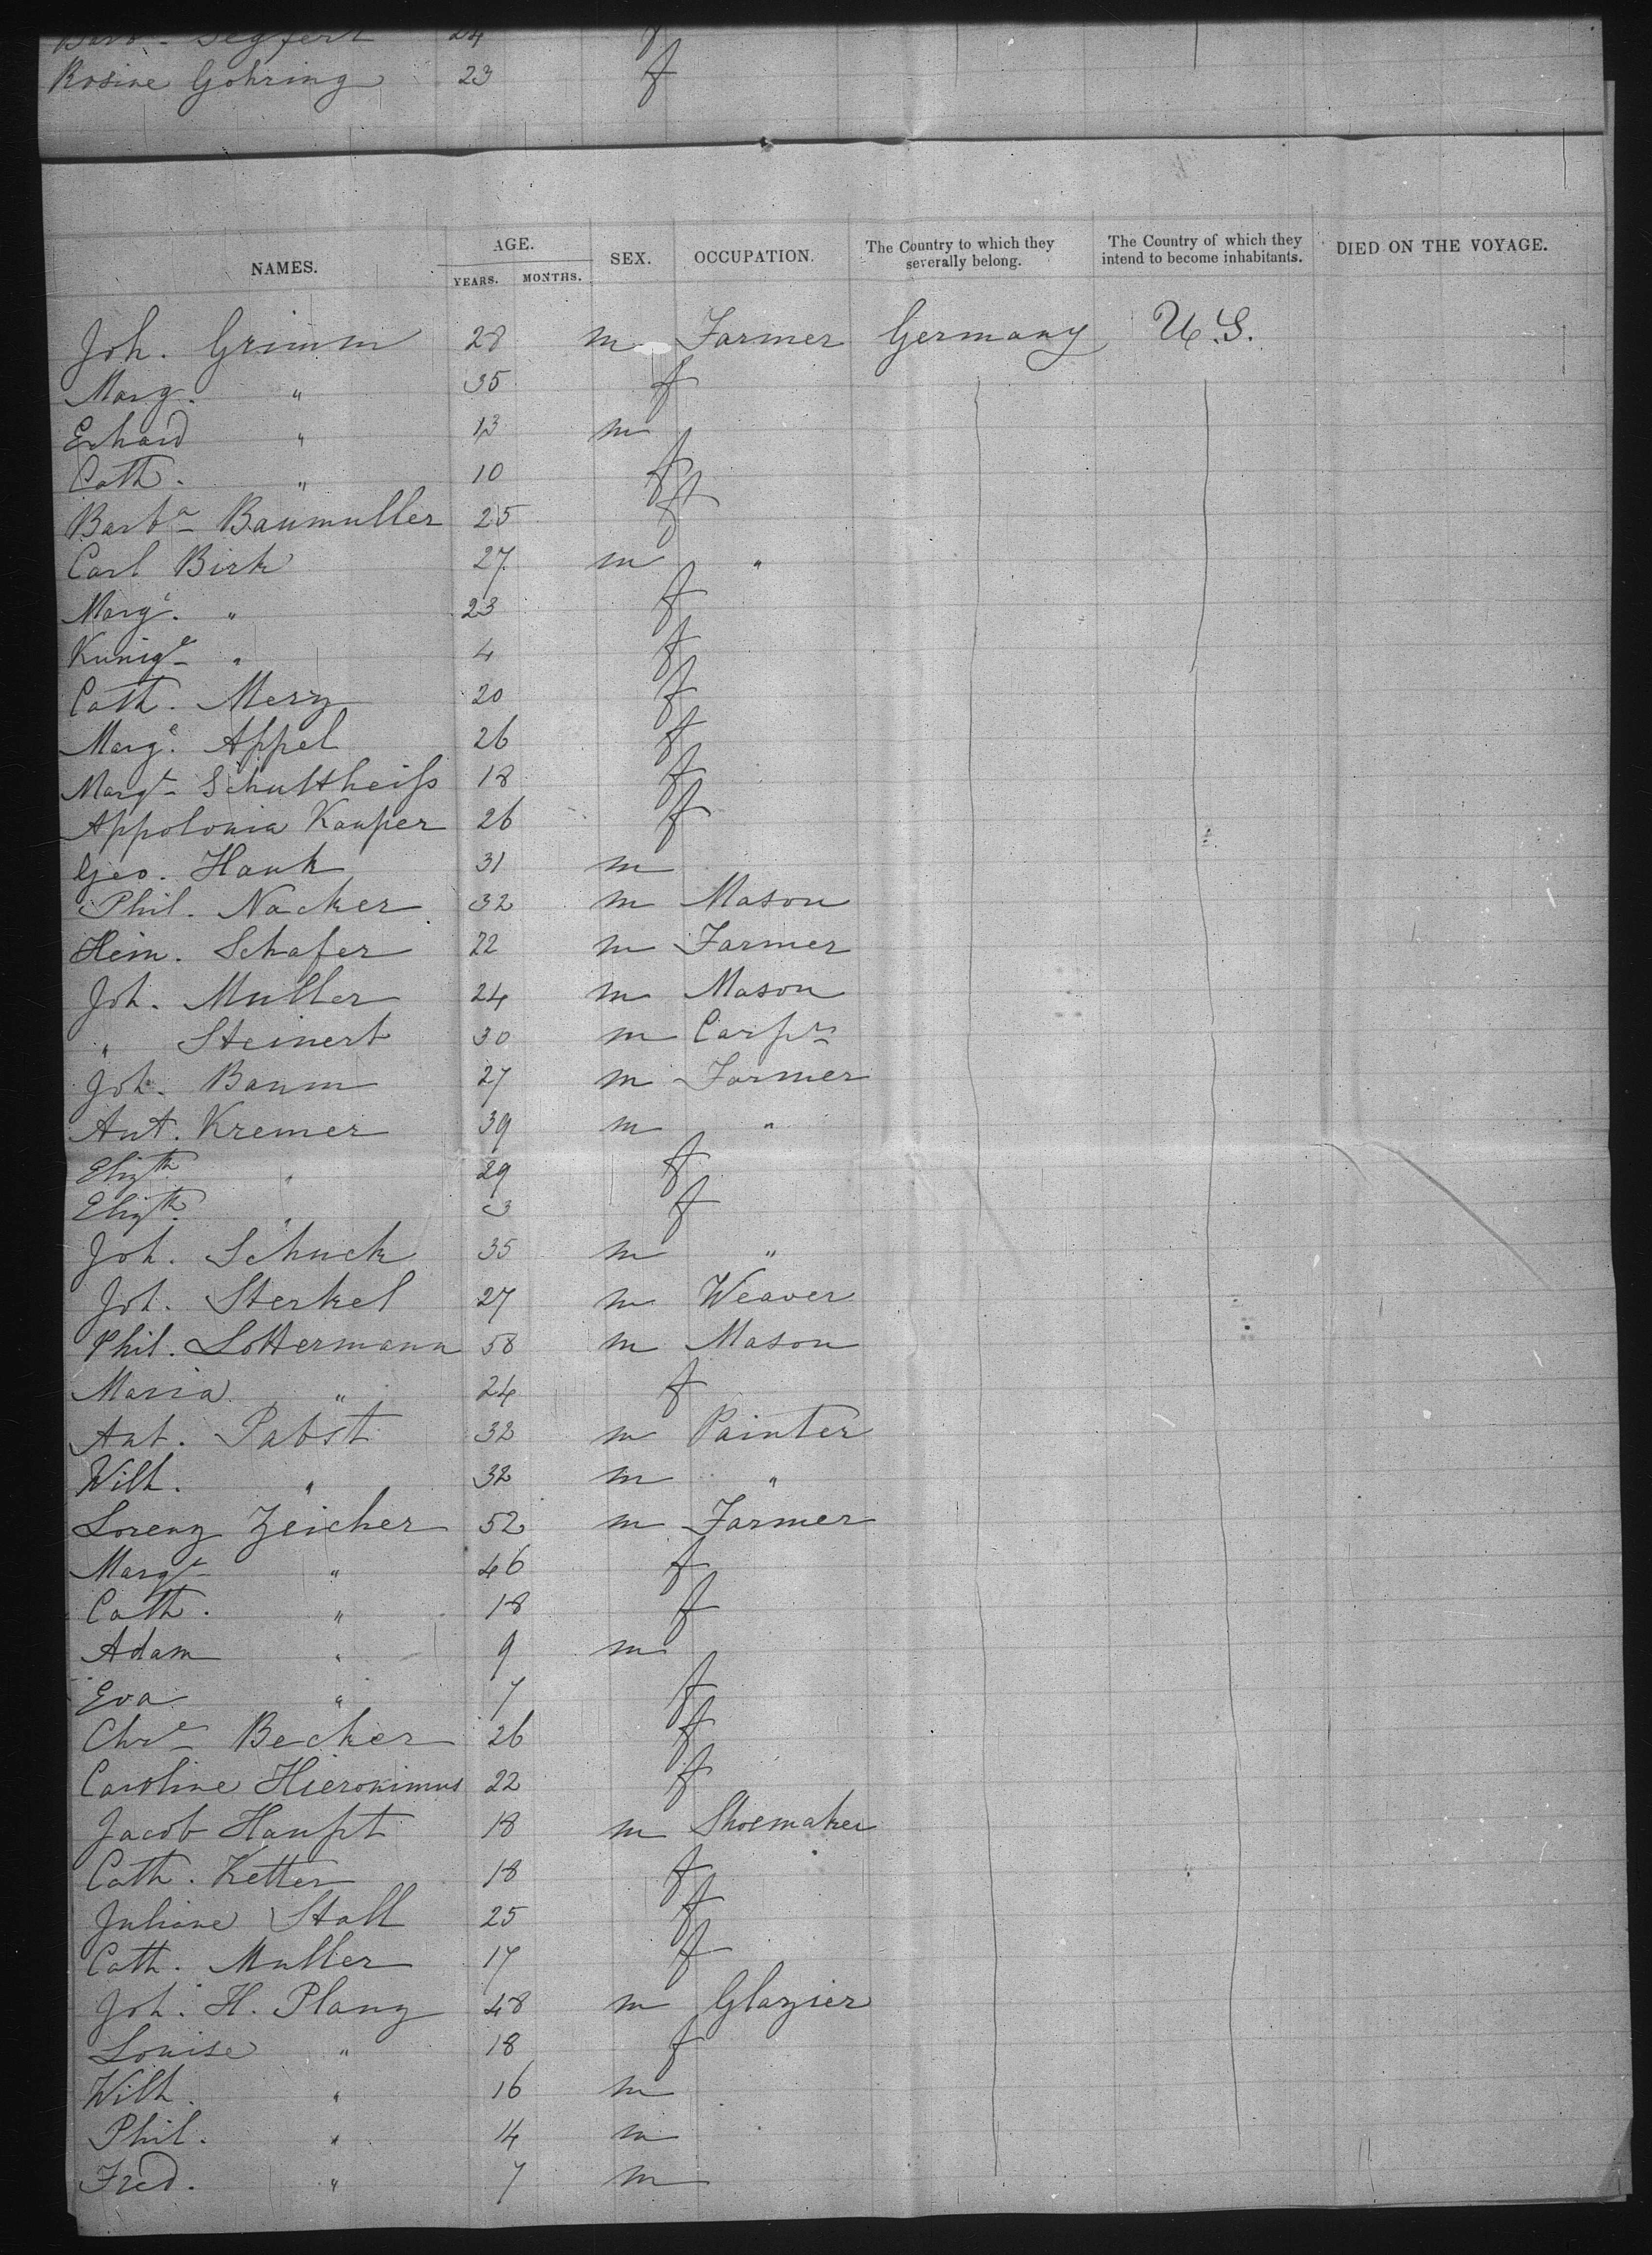 Barb.a Segfert 24 f
Rosine Gohring 23 f
NAMES. AGE. YEARS. MONTHS. SEX. OCCUPATION. The Country to which they severally belong. The Country of which they intend to become inhabitants. DIED ON THE VOYAGE.
Joh. Grimm 28 m Farmer Germany U.S.
Marg. " 35 f
Erhard " 13 m
Cath. " 10 f
Barba Baumuller 25 f
Carl Birk 27 m "
Marge. " 23 f
Kunige " 4 f
Cath. Merz 20 f
Marge. Appel 26 f
Margt Schultheiſs 18 f
Appolonia Kauper 26 f
Geo. Hauk 31 m
Phil. Nacker 32 m Mason
Hein. Schafer 22 m Farmer
Joh. Muller 24 m Mason
" Steinert 30 m Carpr
Joh. Baum 27 m Farmer
Ant. Kremer 39 m "
Elizth " 29 f
Elizth " 3 f
Joh. Schuck 35 m "
Joh. Sterkel 27 m Weaver
Phil. Lottermann 58 m Mason
Maria " 24 f
Ant. Pabst 32 m Painter
Wilh. " 32 m "
Lorenz Zeicher 52 m Farmer
Margt " 46 f
Cath. " 18 f
Adam " 9 m
Eva " 7 f
Chre Becker 26 f
Caroline Hieronimus 22 f
Jacob Haupt 18 m Shoemaker
Cath. Ketter 18 f
Juliane Stall 25 f
Cath. Muller 17 f
Joh. H. Planz 48 m Glazier
Louise " 18 f
Wilh. " 16 m
Phil. " 14 m
Fred. " 7 m